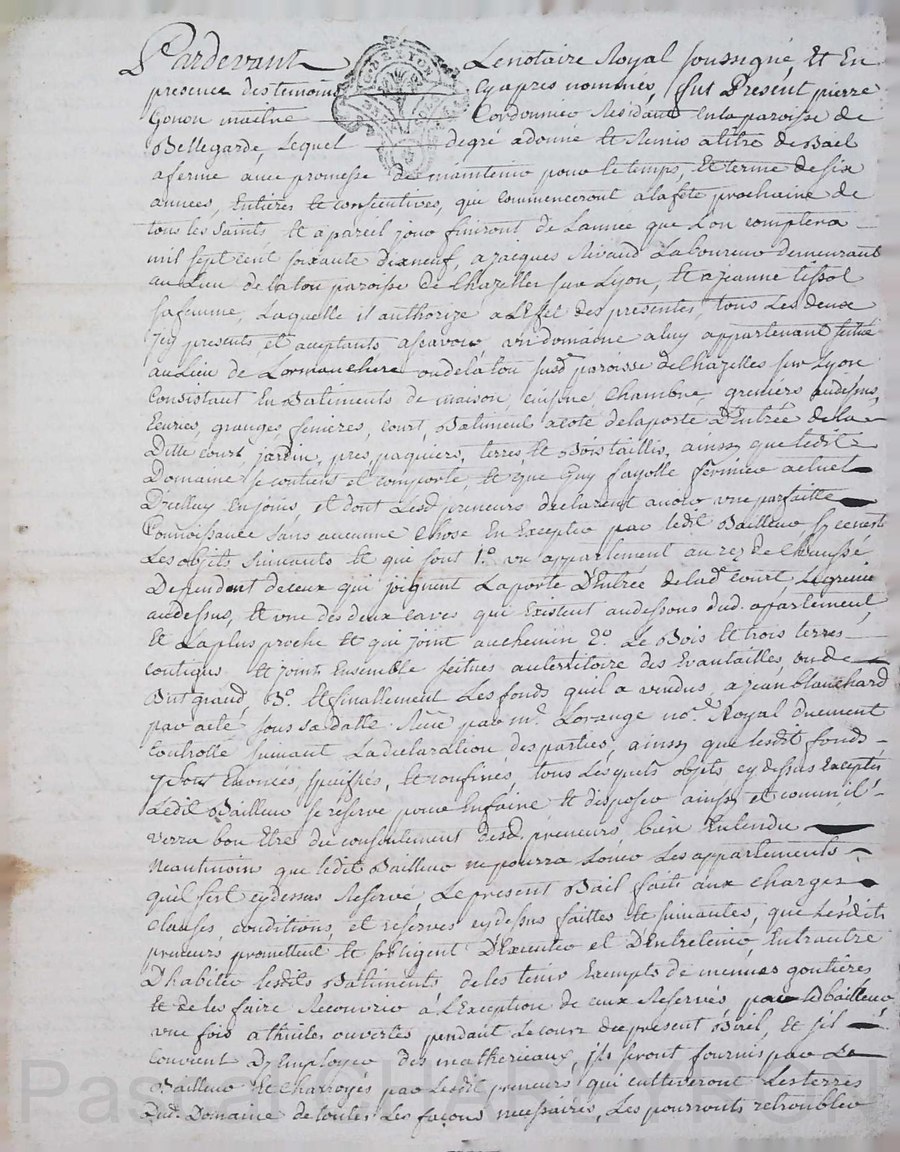 Pardevant Le notaire Royal soussigné, Et En
presence des temoins Cy apres nommés, fut Present pierre
Gonon maitre Cordonnier Residant En la paroisse de
Bellegarde, Lequel degré a donné et Remis a titre de Bail
a ferme avec promesse de maintenir pour le temps, et terme de six
années, Entières et consecutives, qui commenceront a la fete prochaine de
tous les saints et a pareil jour finiront de L'année que L'on comptera
mil sept cent soixante dixneuf, a jacques Rivaud Laboureur demeurant
au Lieu de la tou paroisse de Chazelles sur Lyon, et a jeanne tissot
sa femme, Laquelle il authorize a L'efet des presentes, tous Les deux
icy presents, et acceptants a sçavoir, un domaine a luy appartenant scitué
au Lieu de Lormanchere ou de la tou susd. paroisse de Chazelles sur Lyon
Consistant En Batiments de maison, cuisine Chambre, greniers audessus,
Ecuries, granges, fenieres, court, Batiment a coté de la porte D'Entrée de la
Ditte court, jardin, pres paquiers, terres, et Bois taillis, ainsy que ledit
Domaine se contient et comporte, et que Guy fayolle fermier actuel
D'icelluy En jouis, et dont Lesd. preneurs declarent avoir une parfaite
Connoissance sans aucunne Chose En Excepter par ledit Bailleur sy ce n'est
Les objets suivants et qui sont 1.o un appartement au rez de Chaussé
Dependent de ceux qui joignent La porte D'Entrée de lad. court Le grenier
audessus, et une des deux caves, qui Existent audessous dud. apartement,
et La plus proche et qui joint au chemin 2.o Le Bois et trois terres
contigus et joints Ensemble scitues au territoire des Evantailles, ou de
But grand, 3.o et finallement Les fonds qu'il a vendus, a jean blanchard
par acte sous sa datte Reçu par m.e Lorange no.re Royal duement
Controllé suivant La declaration des parties, ainsy que lesdt fonds
y sont Enoncés, spécifiés, et confinés, tous Lesquels objets cy dessus Exceptés
Ledit Bailleur se reserve pour En faire et disposer ainsy et comm'il
verra bon Etre du consentement desd. preneurs bien Entendu
Neantmoin que ledit Bailleur ne pourra Louer Les appartements
qu'il s'est cy dessus Reservé, Le present Bail fait aux charges
clauses, conditions, et reserves cy dessus faittes et suivantes, que Lesdits
preneurs promettent et s'obligent D'Executer et D'Entretenir, Entrautre
D'habiter lesdits Batiments de les tenir Exempts de menues goutières
et de les faire Recouvrir a L'Exception de ceux Reservés, par led bailleur,
une fois a thuiles ouvertes pendant Le cours du present Bail, et s'il
Convient D'Employer des matherieaux, ils seront fournis par Le
Bailleur et Charroyés par Lesdit preneurs, qui cultiveront Les terres
Dud. Domaine de toutes Les façons necessaires, Les pourronts retroubler
G. DE LYON
Pascal CHAREYRON